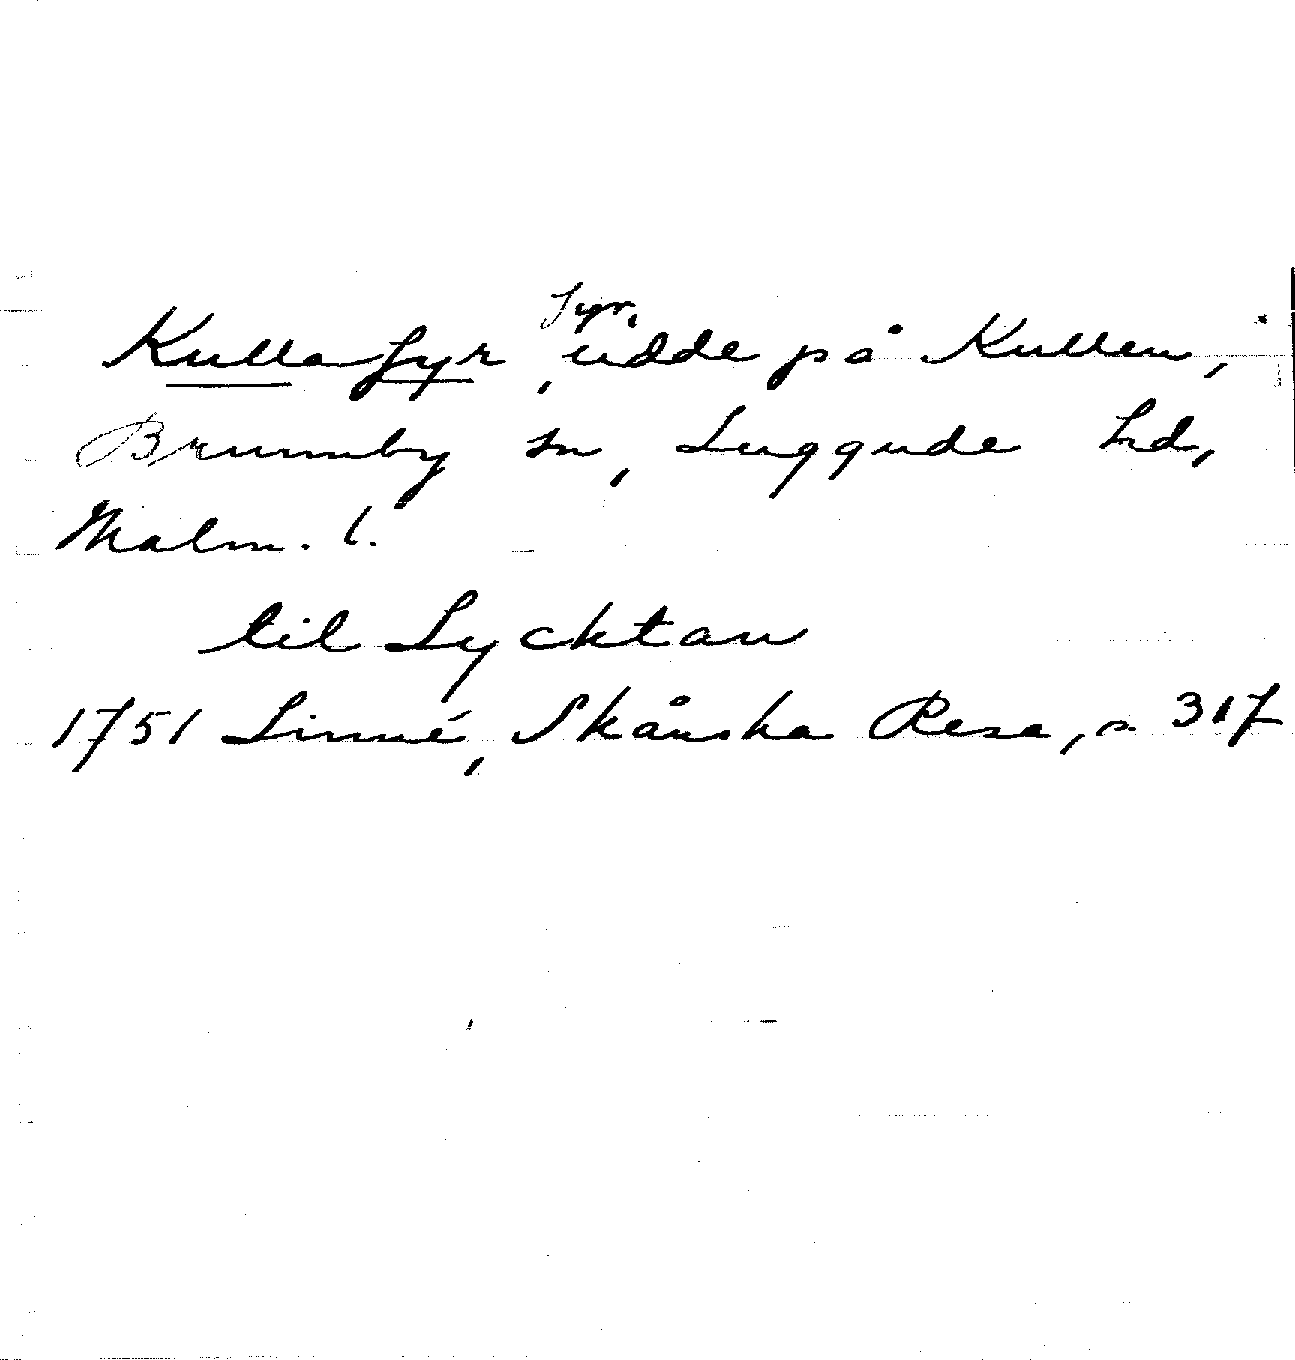 Kulla fyr, fyr, udde på Kullen,
Brunnby sn, Luggude hd,
Malm. l.
til Lycktan
1751 Linné, Skånska Resa, s. 317